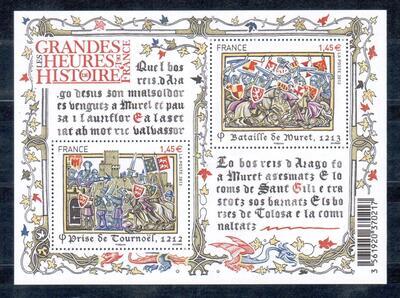 LES
GRANDES
HEURES
DE
L'
HISTOIRE
DE
FRANCE
Quel bos
reis d'Ara
go desus son mialsoldor
es vengutz a Muret et pau
za i launflor E a ssetiat
ab ab mot ric valvassor
FRANCE
1,45€
LA POSTE 2012
Bataille de Muret, 1213
FRANCE
1,45€
Prise de Tournoël, 1212
Lo bos reis d'Arago fo
a Muret asesmatz E lo
coms de Sant Gili e tra
stotz sos barnatz E ls bo
rzes de Tolosa e la com
naltatz
3 561920 370217